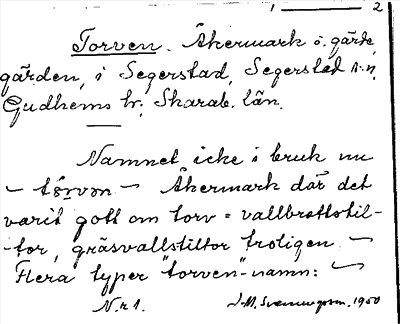 1 — 2
Torven. Åkermark å gärde,
gården, i Segerstad, Segerstad s:n,
Gudhems hr, Skarab. län.
Namnet icke i bruk nu
– törvən – Åkermark där det
varit gott om torv = vallbrottstil-
tor, gräsvallstiltor troligen. –
Flera typer "torven"-namn: –
N:r 1. 1950